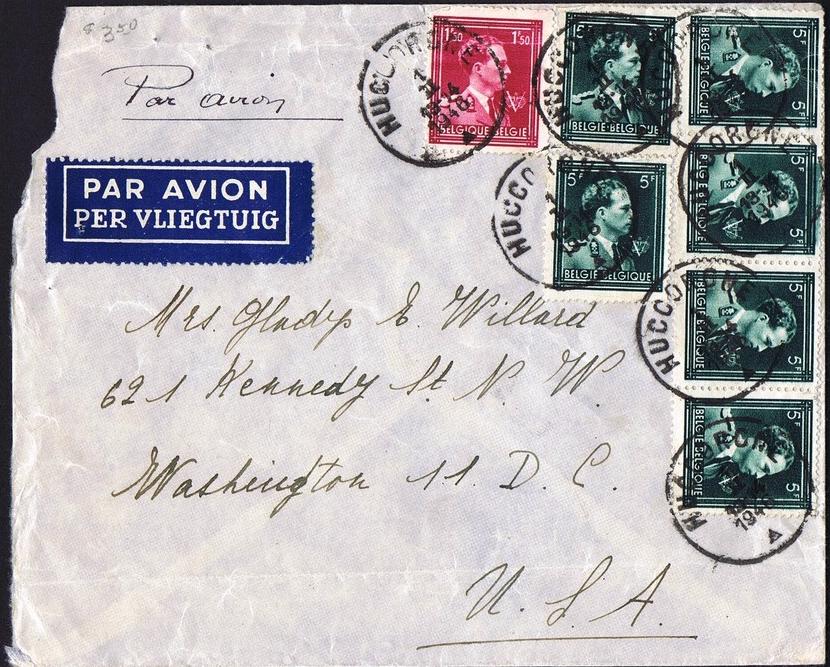 $ 3.50
Par avion
PAR AVION
PER VLIEGTUIG
1F50 1F50
BELGIQUE·BELGIE
5F 5F
BELGIE·BELGIQUE
5F 5F
BELGIE·BELGIQUE
5F 5F
BELGIE·BELGIQUE
5F 5F
BELGIE·BELGIQUE
5F 5F
BELGIE·BELGIQUE
5F 5F
BELGIE·BELGIQUE
HUCCORGNE
1948
HUCCORGNE
1948
HUCCORGNE
1948
HUCCORGNE
1948
Mrs. Gladys E. Willard
621 Kennedy St. N. W.
Washington 11. D. C.
U. S. A.